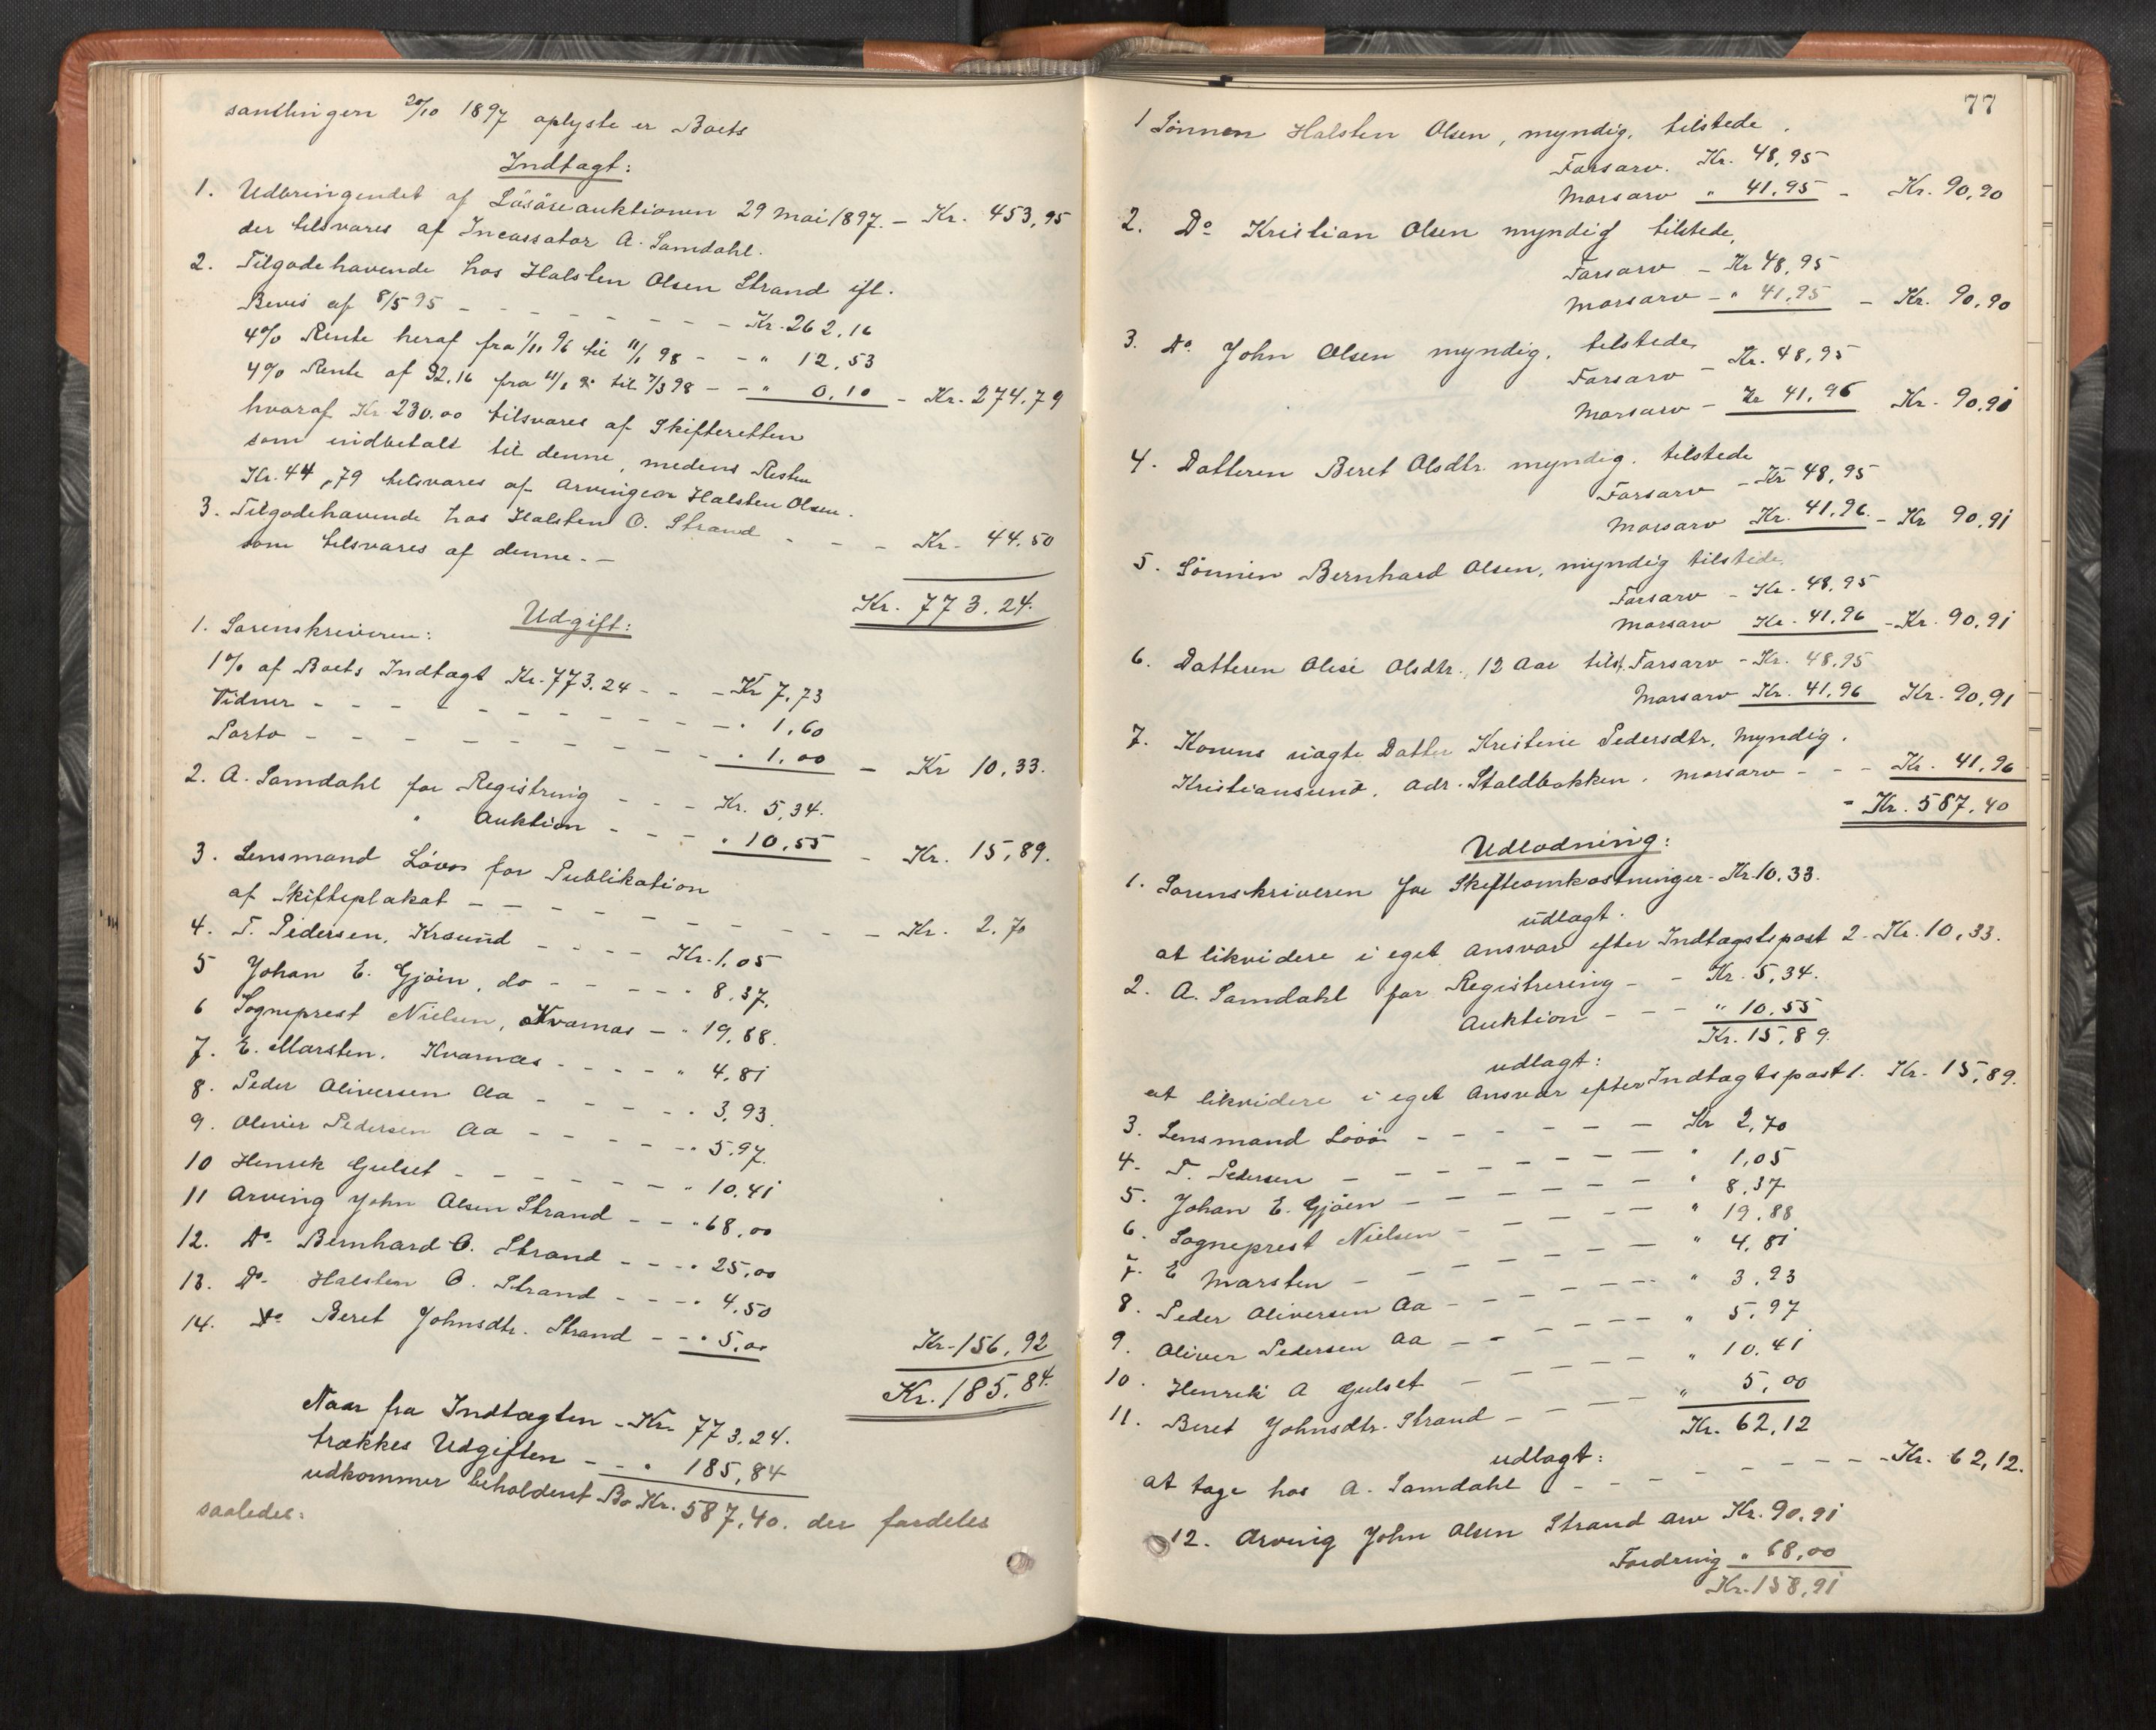 samlingen 20/10 1897 oplyste er Boets
Indtægt:
1. Udbringendet af Løsøreauktionen 29 mai 1897. - Kr. 453,95
der tilsvares af Incassator A. Samdahl.
2. Tilgodehavende hos Halsten Olsen Strand ifl.
Bevis af 8/5 95 - - - - - - - - Kr. 262,16
4% Rente heraf fra 1/11 96 til 11/1 98 - - " 12,53
4% Rente af 32,16 fra 11/1 98 til 7/3 98 - - " 0,10 - Kr. 274,79
hvoraf Kr. 230.00 tilsvares af Skifteretten
som indbetalt til denne, medens Resten
Kr. 44,79 tilsvares af Arvingen Halsten Olsen.
3. Tilgodehavende hos Halsten O. Strand - - - Kr. 44.50
som tilsvares af denne. -
Kr. 773.24.
Udgift:
1. Sorenskriveren:
1% af Boets Indtægt Kr. 773.24 - - - Kr 7,73
Vidner - - - - - - - - - - " 1,60
Porto - - - - - - - - - - " 1,00 - Kr 10,33.
2. A. Samdahl for Registrering - - - Kr. 5,34.
" Auktion - - - - " 10,55 - Kr. 15,89.
3. Lensmand Løvø for Publikation
af Skifteplakat - - - - - - - - - - Kr. 2.70
4. T. Pedersen, Krsund - - - - Kr. 1,05
5 Johan E. Gjøen, do - - - - - " 8,37.
6 Sogneprest Nielsen, Kvarnæs - " 19,88.
7. E. Marsten, Kvarnæs - - - - " 4,81
8. Peder Oliversen Aa - - - - - " 3,93.
9. Oliver Pedersen Aa - - - - - " 5.97.
10 Henrik Gulset - - - - - - - " 10,41
11 Arving John Olsen Strand - - " 68,00
12. Do. Bernhard O. Strand - - - " 25,00
13. Do. Halsten O. Strand - - - " 4.50
14. Do Beret Johnsdtr. Strand - - " 5,00 Kr. 156,92
Kr. 185,84.
Naar fra Indtægten - Kr. 773.24.
trækkes Udgiften - - " 185,84
udkommer beholdent Bo Kr. 587,40. der fordeles
saaledes:
77
1 Sønnen Halsten Olsen, myndig, tilstede.
Farsarv. Kr. 48,95
Morsarv " 41.95 - Kr. 90,90
2. Do Kristian Olsen myndig tilstede,
Farsarv - Kr 48,95
Morsarv - " 41,95 - Kr. 90,90
3. Do. John Olsen myndig, tilstede,
Farsarv - Kr. 48,95
Morsarv - Kr 41,96 Kr. 90,91
4. Datteren Beret Olsdtr. myndig. tilstede
Farsarv - Kr 48,95
Morsarv Kr. 41,96. - Kr 90,91
5. Sønnen Bernhard Olsen, myndig tilstede,
Farsarv - Kr. 48,95
Morsarv Kr. 41,96 - Kr. 90,91
6. Datteren Olise Olsdtr., 12 Aar tilst. Farsarv - Kr. 48,95
Morsarv Kr. 41,96 Kr. 90,91
7. Konens uægte Datter Kristine Pedersdtr, myndig.
Kristiansund, adr. Staldbakken, morsarv - - - Kr. 41,96
- Kr. 587,40
Udlodning:
1. Sorenskriveren for Skifteomkostninger - Kr. 10,33.
udlagt.
at likvidere i eget Ansvar efter Indtægtspost 2 - Kr. 10,33.
2. A. Samdahl for Registrering - - Kr. 5,34.
Auktion - - - " 10,55
Kr. 15,89.
udlagt:
at likvidere i eget Ansvar efter Indtægtspost 1. Kr. 15,89.
3. Lensmand Løvø - - - - - - Kr 2,70
4. T. Pedersen - - - - - - - " 1,05
5. Johan E. Gjøen - - - - - - " 8,37
6. Sogneprest Nielsen - - - - - " 19,88
7. E Marsten - - - - - - - " 4,81
8. Peder Oliversen Aa - - - - - - " 3,93
9. Oliver Pedersen Aa - - - - - - " 5,97
10. Henrik A Gulset - - - - - " 10,41
11. Beret Johnsdtr. Strand - - - - " 5,00
Kr. 62,12
udlagt:
at tage hos A. Samdahl - - - - - - - - - Kr. 62,12.
12. Arving John Olsen Strand arv Kr. 90,91
Fordring " 68,00
Kr. 158,91